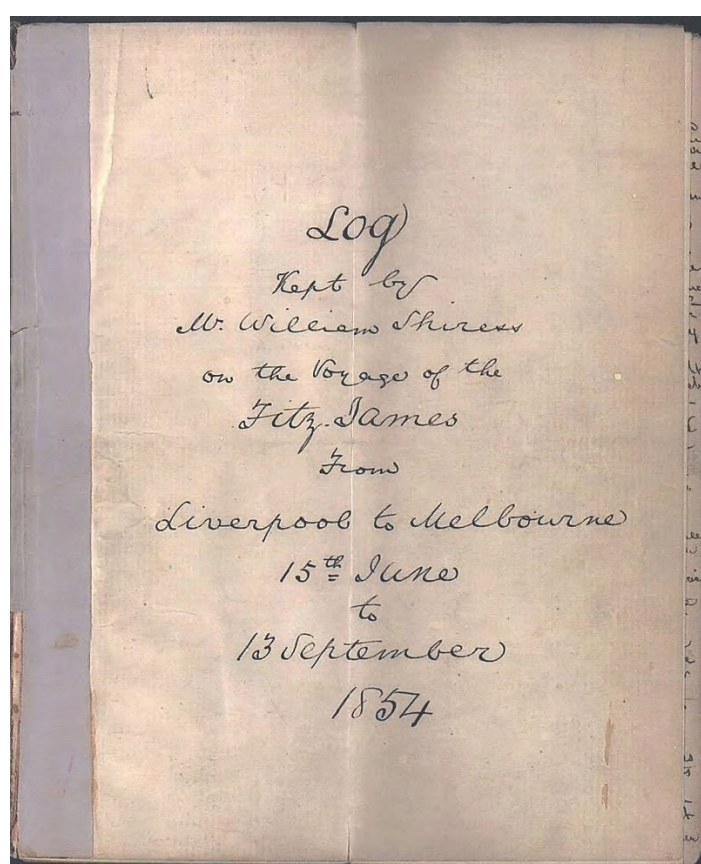 Log
Kept by
Mr. William Shiress
on the Voyage of the
Fitz. James
From
Liverpool to Melbourne
15th June
to
13 September
1854